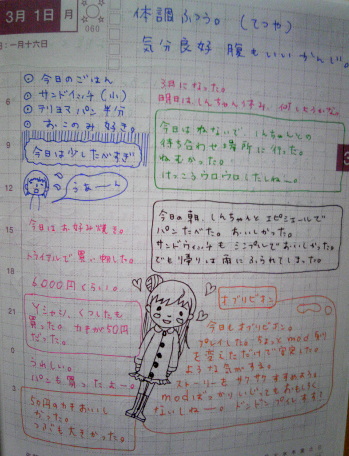 3月 1日 月
060
旧:一月十六日
体調ふつう。(てつや)
気分良好 腹もいいかんじ。
今日のごはん
サンドイッチ(小)
テリヤマパン半分
おこのみ焼き。
今日は少したべすぎ
うぁーん
3月になった。
明日はしんちゃん休み、何しようかな。
今日はねないで、しんちゃんとの
待ち合わせ場所に行った。
ねむかった。
けっこうウロウロしたしねー。
今日の朝、しんちゃんとエピシェールで
パンたべた。おいしかった。
サンドウィッチもシンプルでおいしかった。
でも帰りは雨にふられてしまった。
今日はお好み焼き。
トライアルで買い物した。
6000円くらい。
Yシャツ、くつしたも
買った。カキが50円
だった。
うれしい。
パンも買ったよー。
50円のカキおいし
かった。
つぶも大きかった。
オブリビオン
今日もオブリビオン。
プレイした。ちょっとmod周り
を変えただけで安定した
ような気がする。
ストーリーをサクサクすすめよう。
modばっかりいじってもおもしろく
ないしねー。ドンドンプレイします!
6
9
12
15
18
21
0
3
3